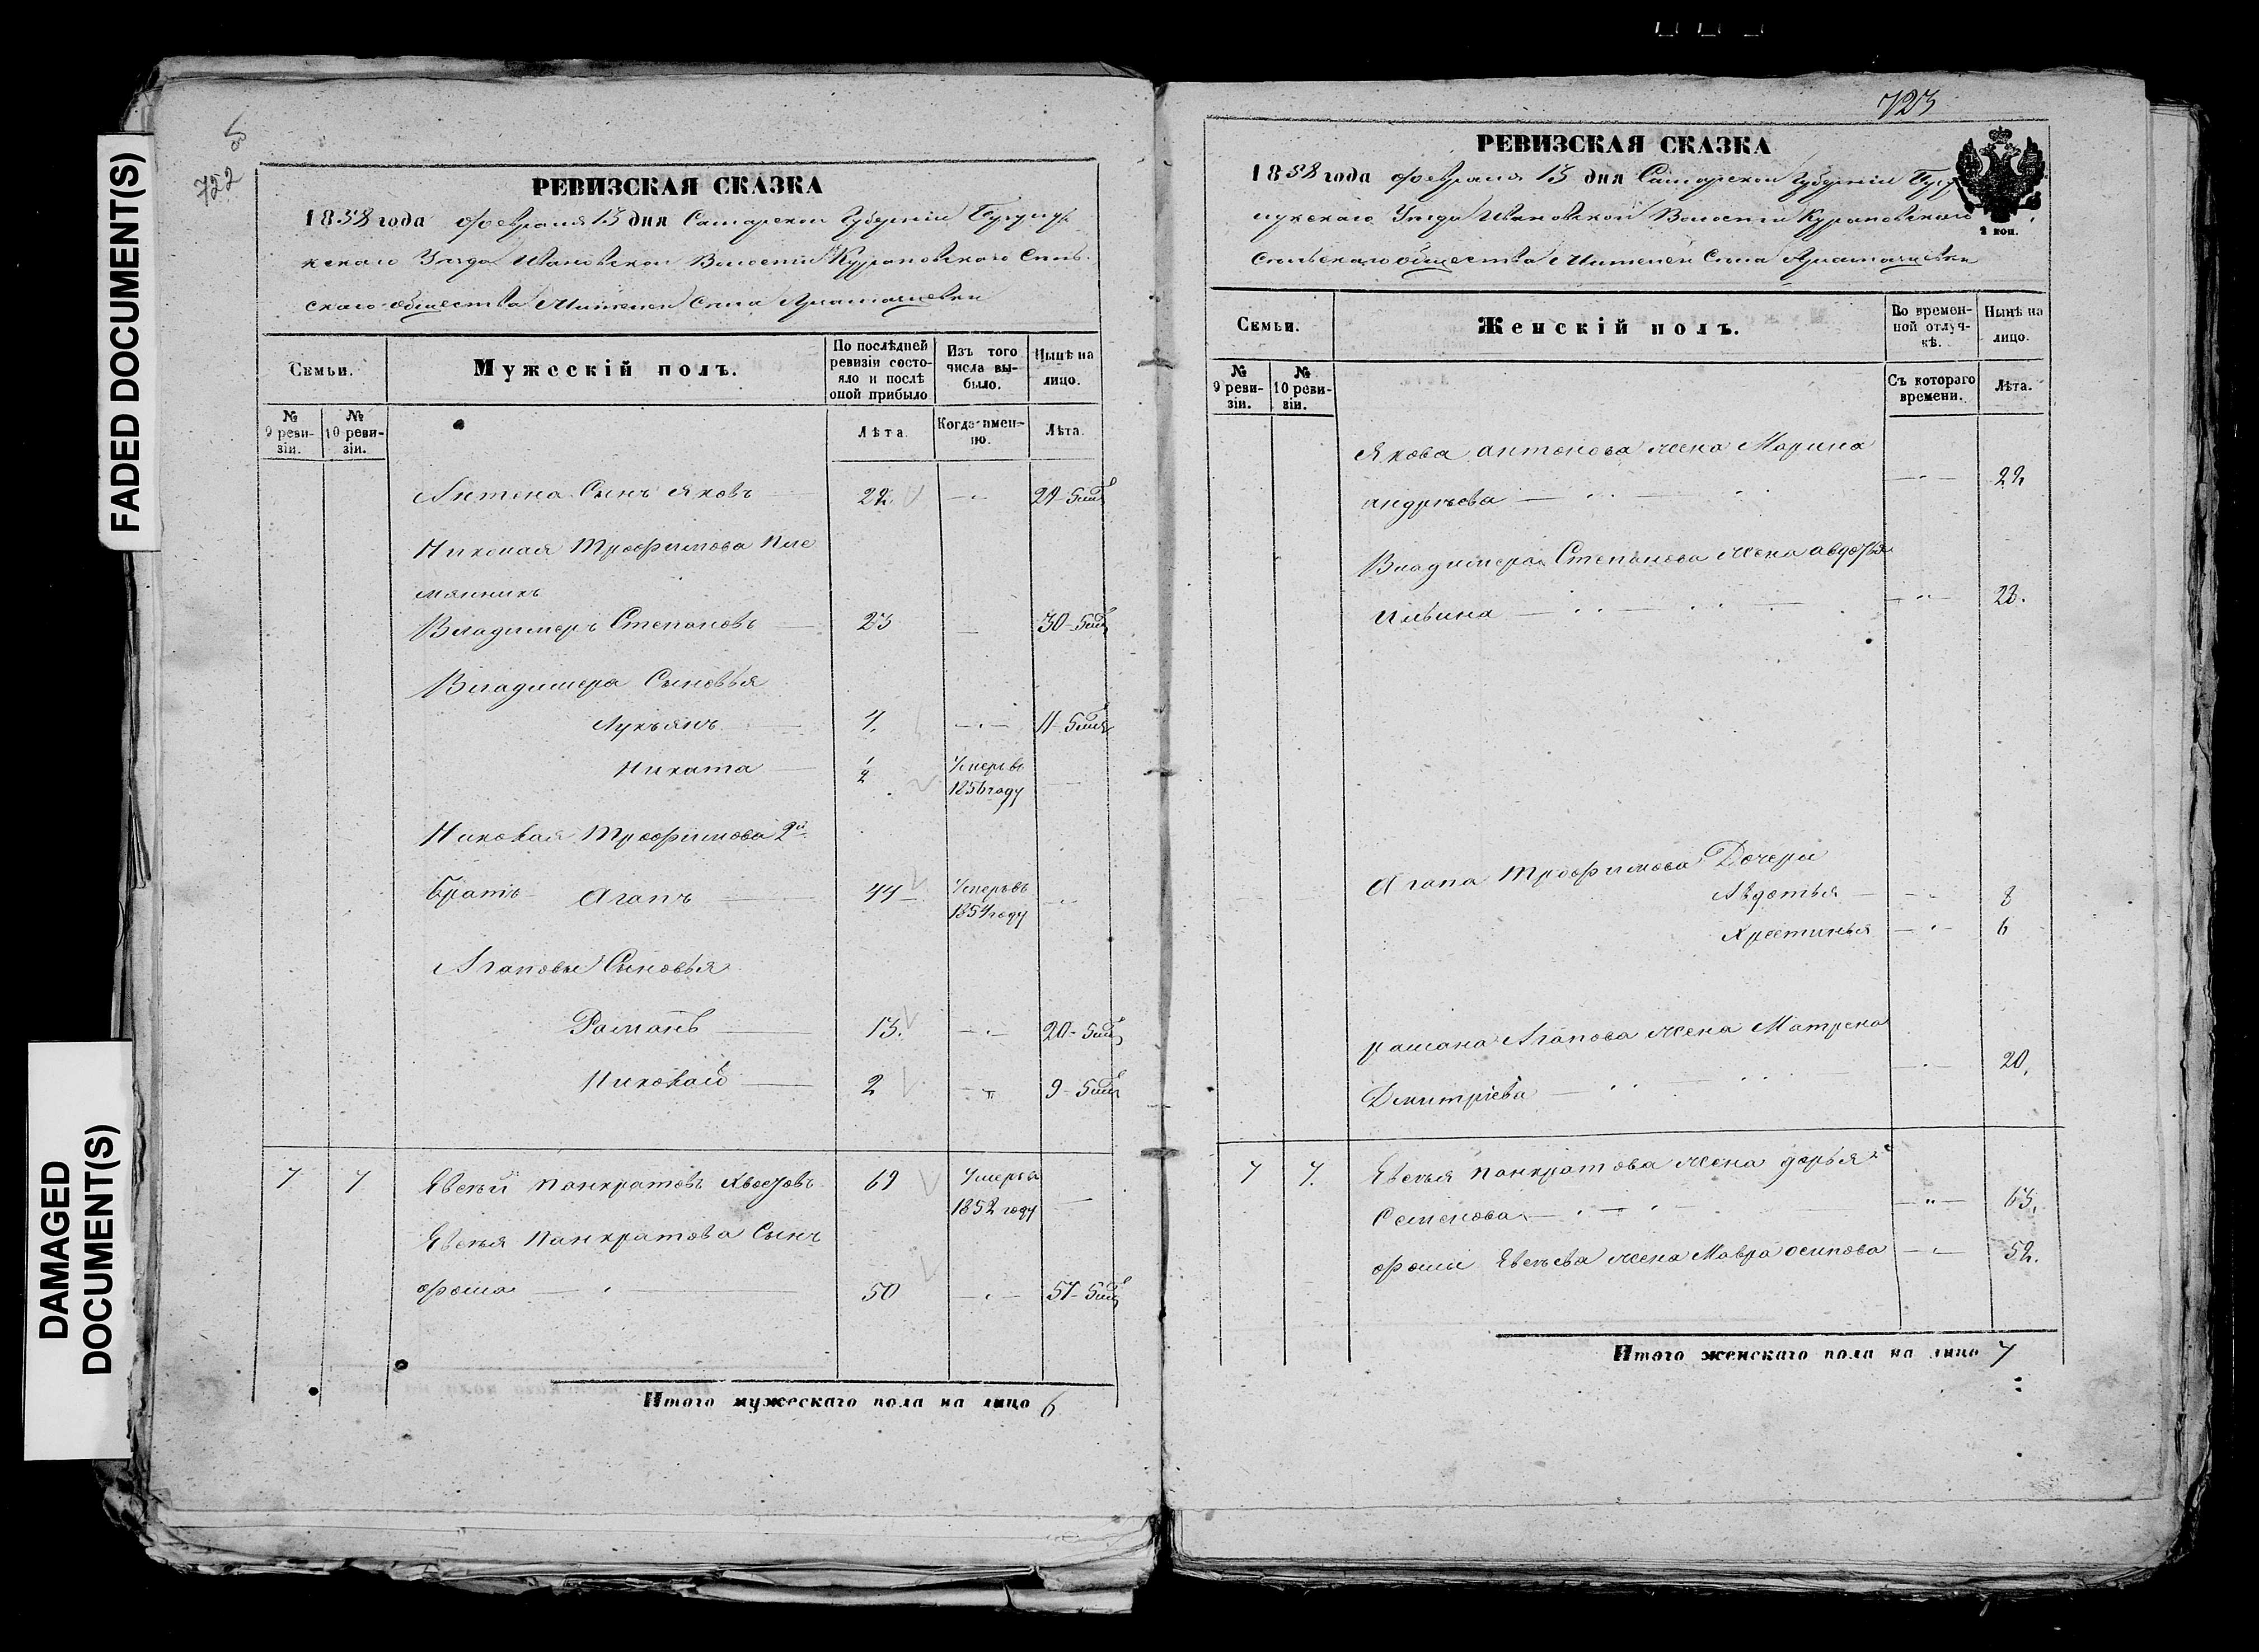 FADED DOCUMENT(S)
DAMAGED
DOCUMENT(S)
722
РЕВИЗСКАЯ СКАЗКА
1858 года февраля 15 дня Самарской Губернiи Бугурус
Уезда Ивановской Волости Курановского Сель
скаго общества Жителей Села
Семьи.
Мужескiй полъ.
По послѣдней
ревизiи состо-
яло и послѣ
оной прибыло
Изъ того
числа вы-
было.
Нынѣ на
лицо.
№
9 реви-
зiи.
№
10 реви-
зiи.
Лѣта.
Когда имен-
но.
Лѣта.
Антона Сынъ Яковъ 22
Николая Трофимова Пле
мянникъ
Владимеръ Степановъ 23 30
Владимера Сыновья
Лукьянъ 4. 11
Никита 1/2 Умеръ въ
1856 году
Николая Трофимова 2й
Братъ Агапъ 44 Умеръ въ
1854 году
Агаповы Сыновья
Раманъ 13. 20
Николай 2 9
7 7 Евсѣй Панкратовъ 69 Умеръ въ
1852 году
Евсѣя Панкратова Сынъ
фома 50 57
Итого мужескаго пола на лицо 6
723
РЕВИЗСКАЯ СКАЗКА
1858 года февраля 15 дня Самарской Губернiи Бугу
Уезда Ивановской Волости Курановского
Сельскаго общества Жителей Села
2 коп.
Семьи.
Женскiй полъ.
Во времен-
ной отлуч-
кѣ.
Нынѣ на
лицо.
№
9 реви-
зiи.
№
10 реви-
зiи.
Съ котораго
времени.
Лѣта.
Якова Антонова жена Марина
андрѣева 22
Владимера Степанова жена авдотья
Ильина 23.
Агапа Трофимова Дочери
Авдотья 8
Христинья 6
рамана Агапова жена Матрена
Дмитрiева 20.
7 7. Евсѣя Панкратова жена дарья
Семенова 63.
фомы Евсѣева жена Мавра осипова 52.
Итого женскаго пола на лицо 7